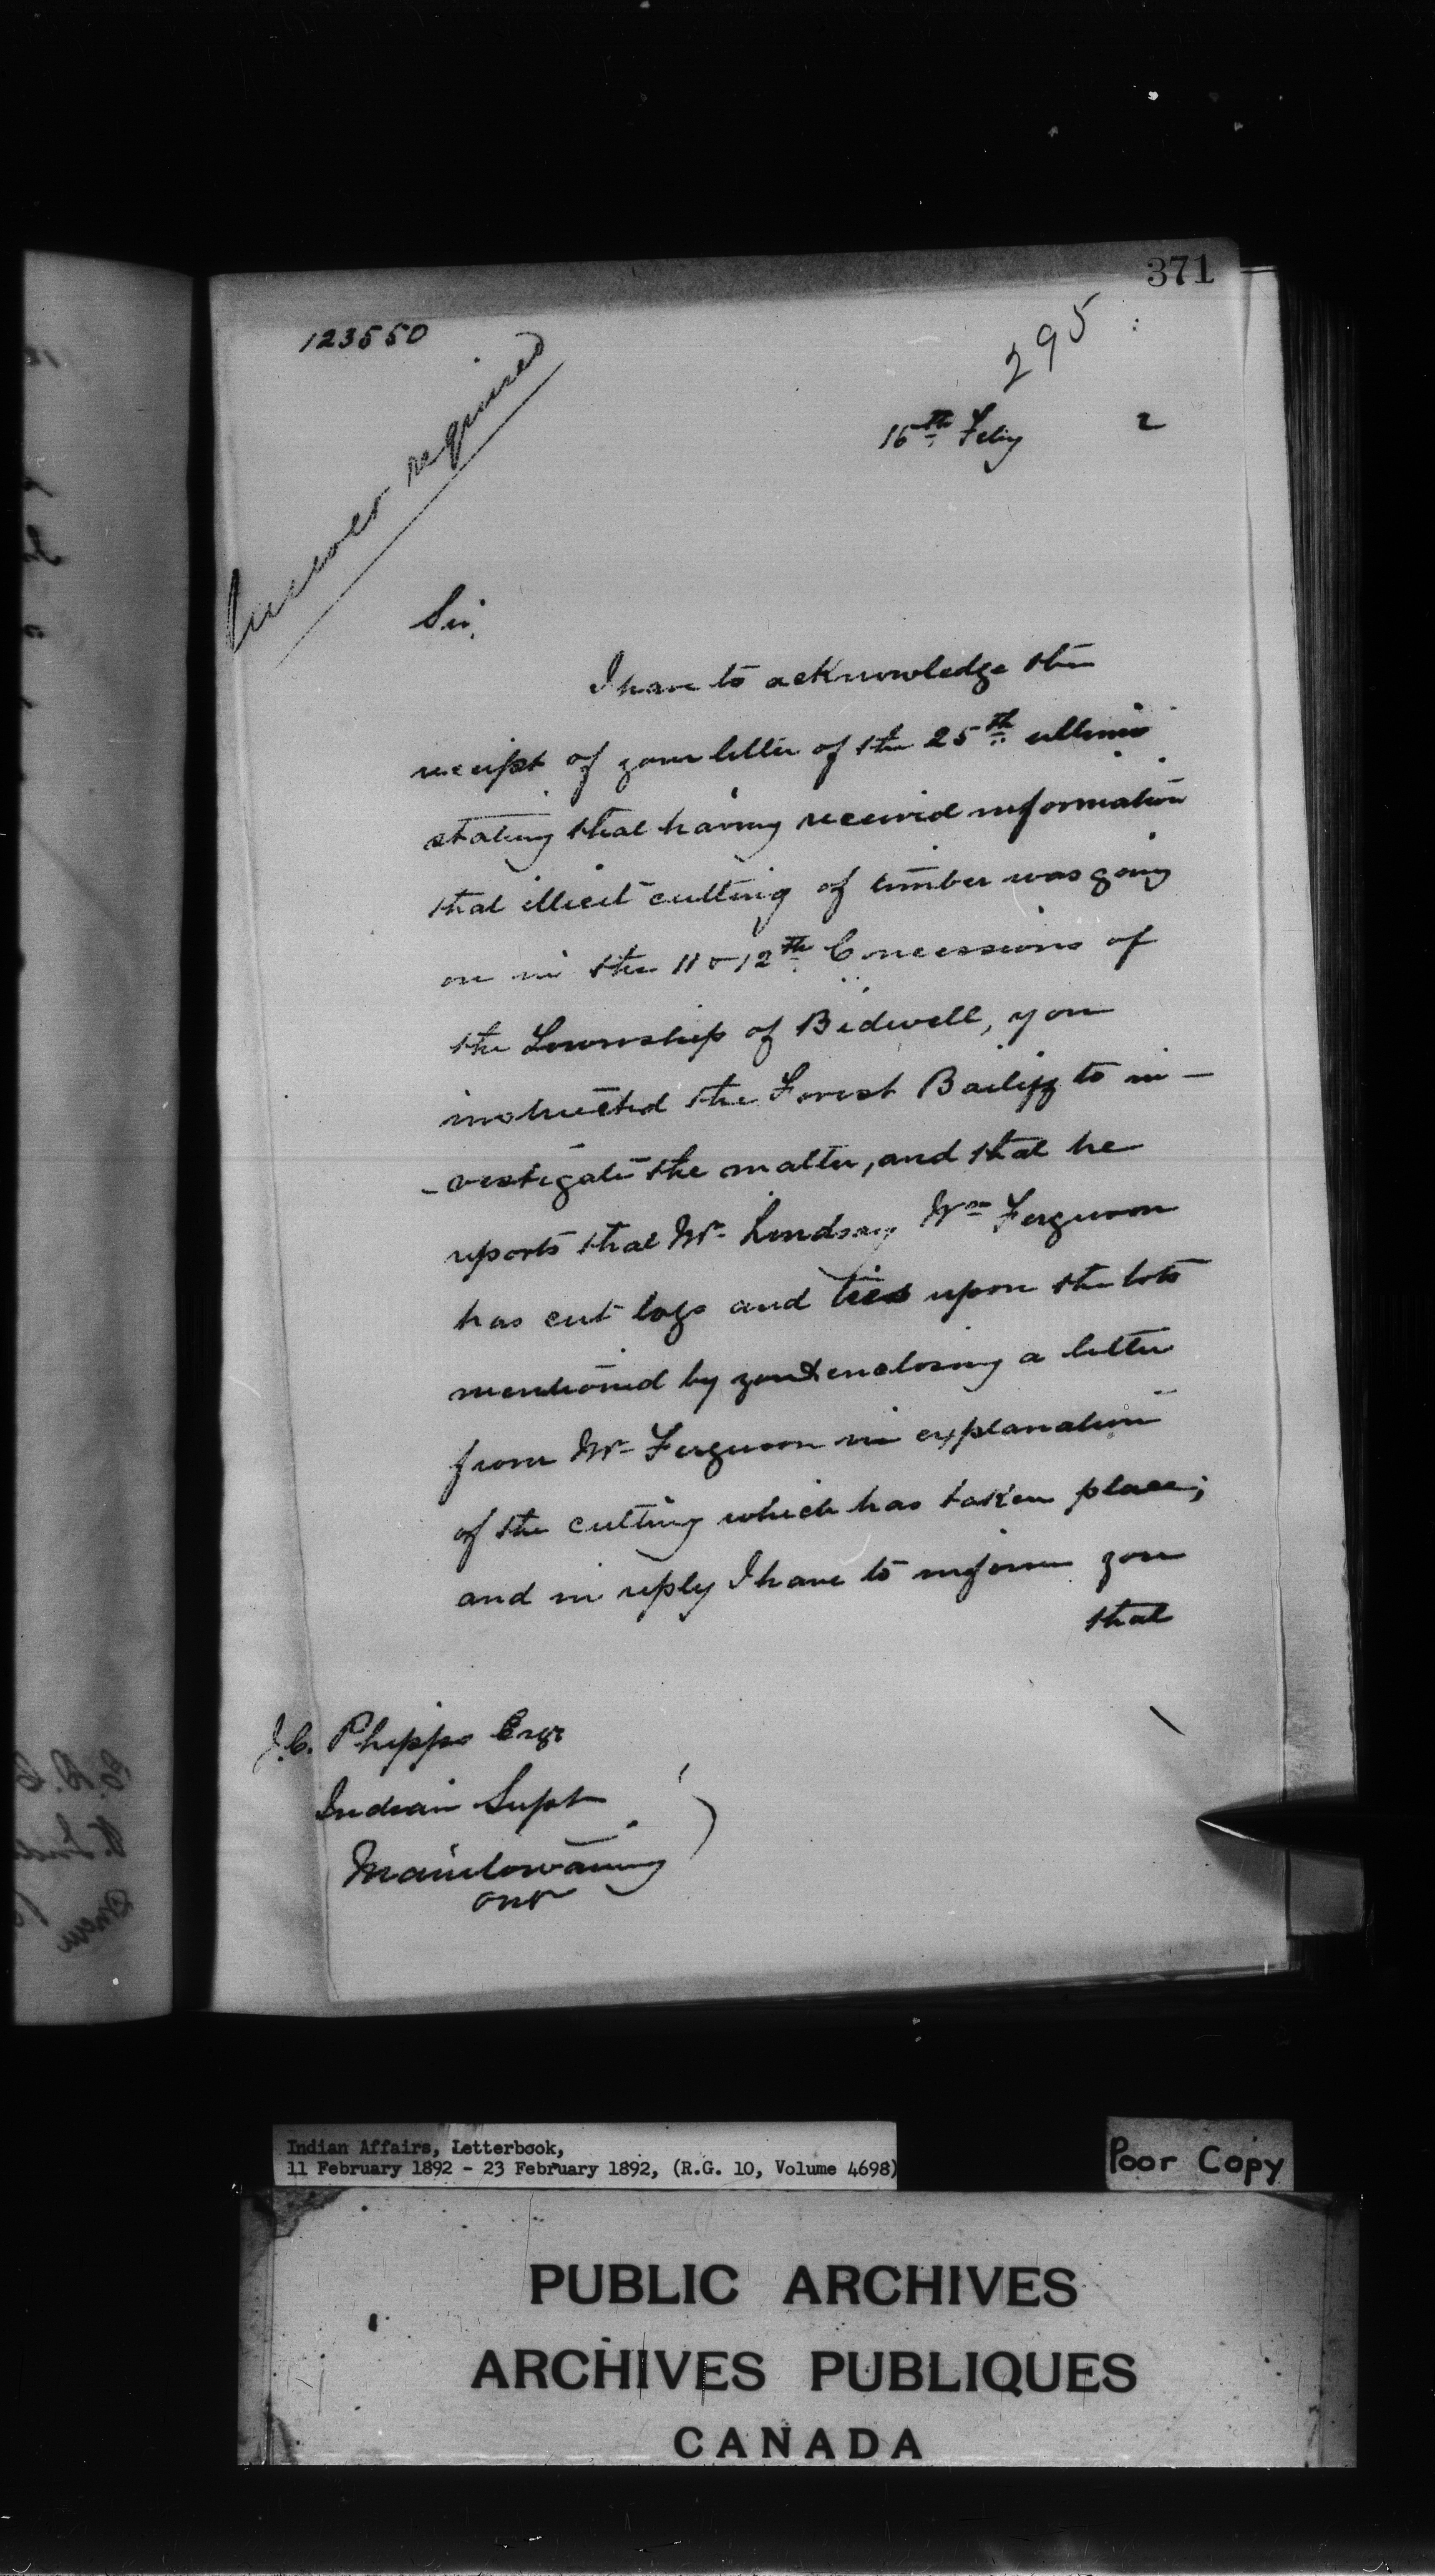 371
123550
295
Answer required
16th Feby 2
Sir,
I have to acknowledge the
receipt of your letter of the 25th ultimo
stating that having received information
that illicit cutting of timber was going
on in the 11 & 12th Concessions of
the Township of Bidwell, you
instructed the Forest Bailiff to in-
-vestigate the matter, and that he
reports that Mr Lindsay Wm Ferguson
has cut logs and ties upon the lots
mentioned by you & enclosing a letter
from Mr Ferguson in explanation
of the cutting which has taken place;
and in reply I have to inform you
that
J.C. Phipps Esqr
Indian Supt
Manitowaning
Ont
Indian Affairs, Letterbook,
11 February 1892 - 23 February 1892, (R.G. 10, Volume 4698)
Poor Copy
PUBLIC ARCHIVES
ARCHIVES PUBLIQUES
CANADA